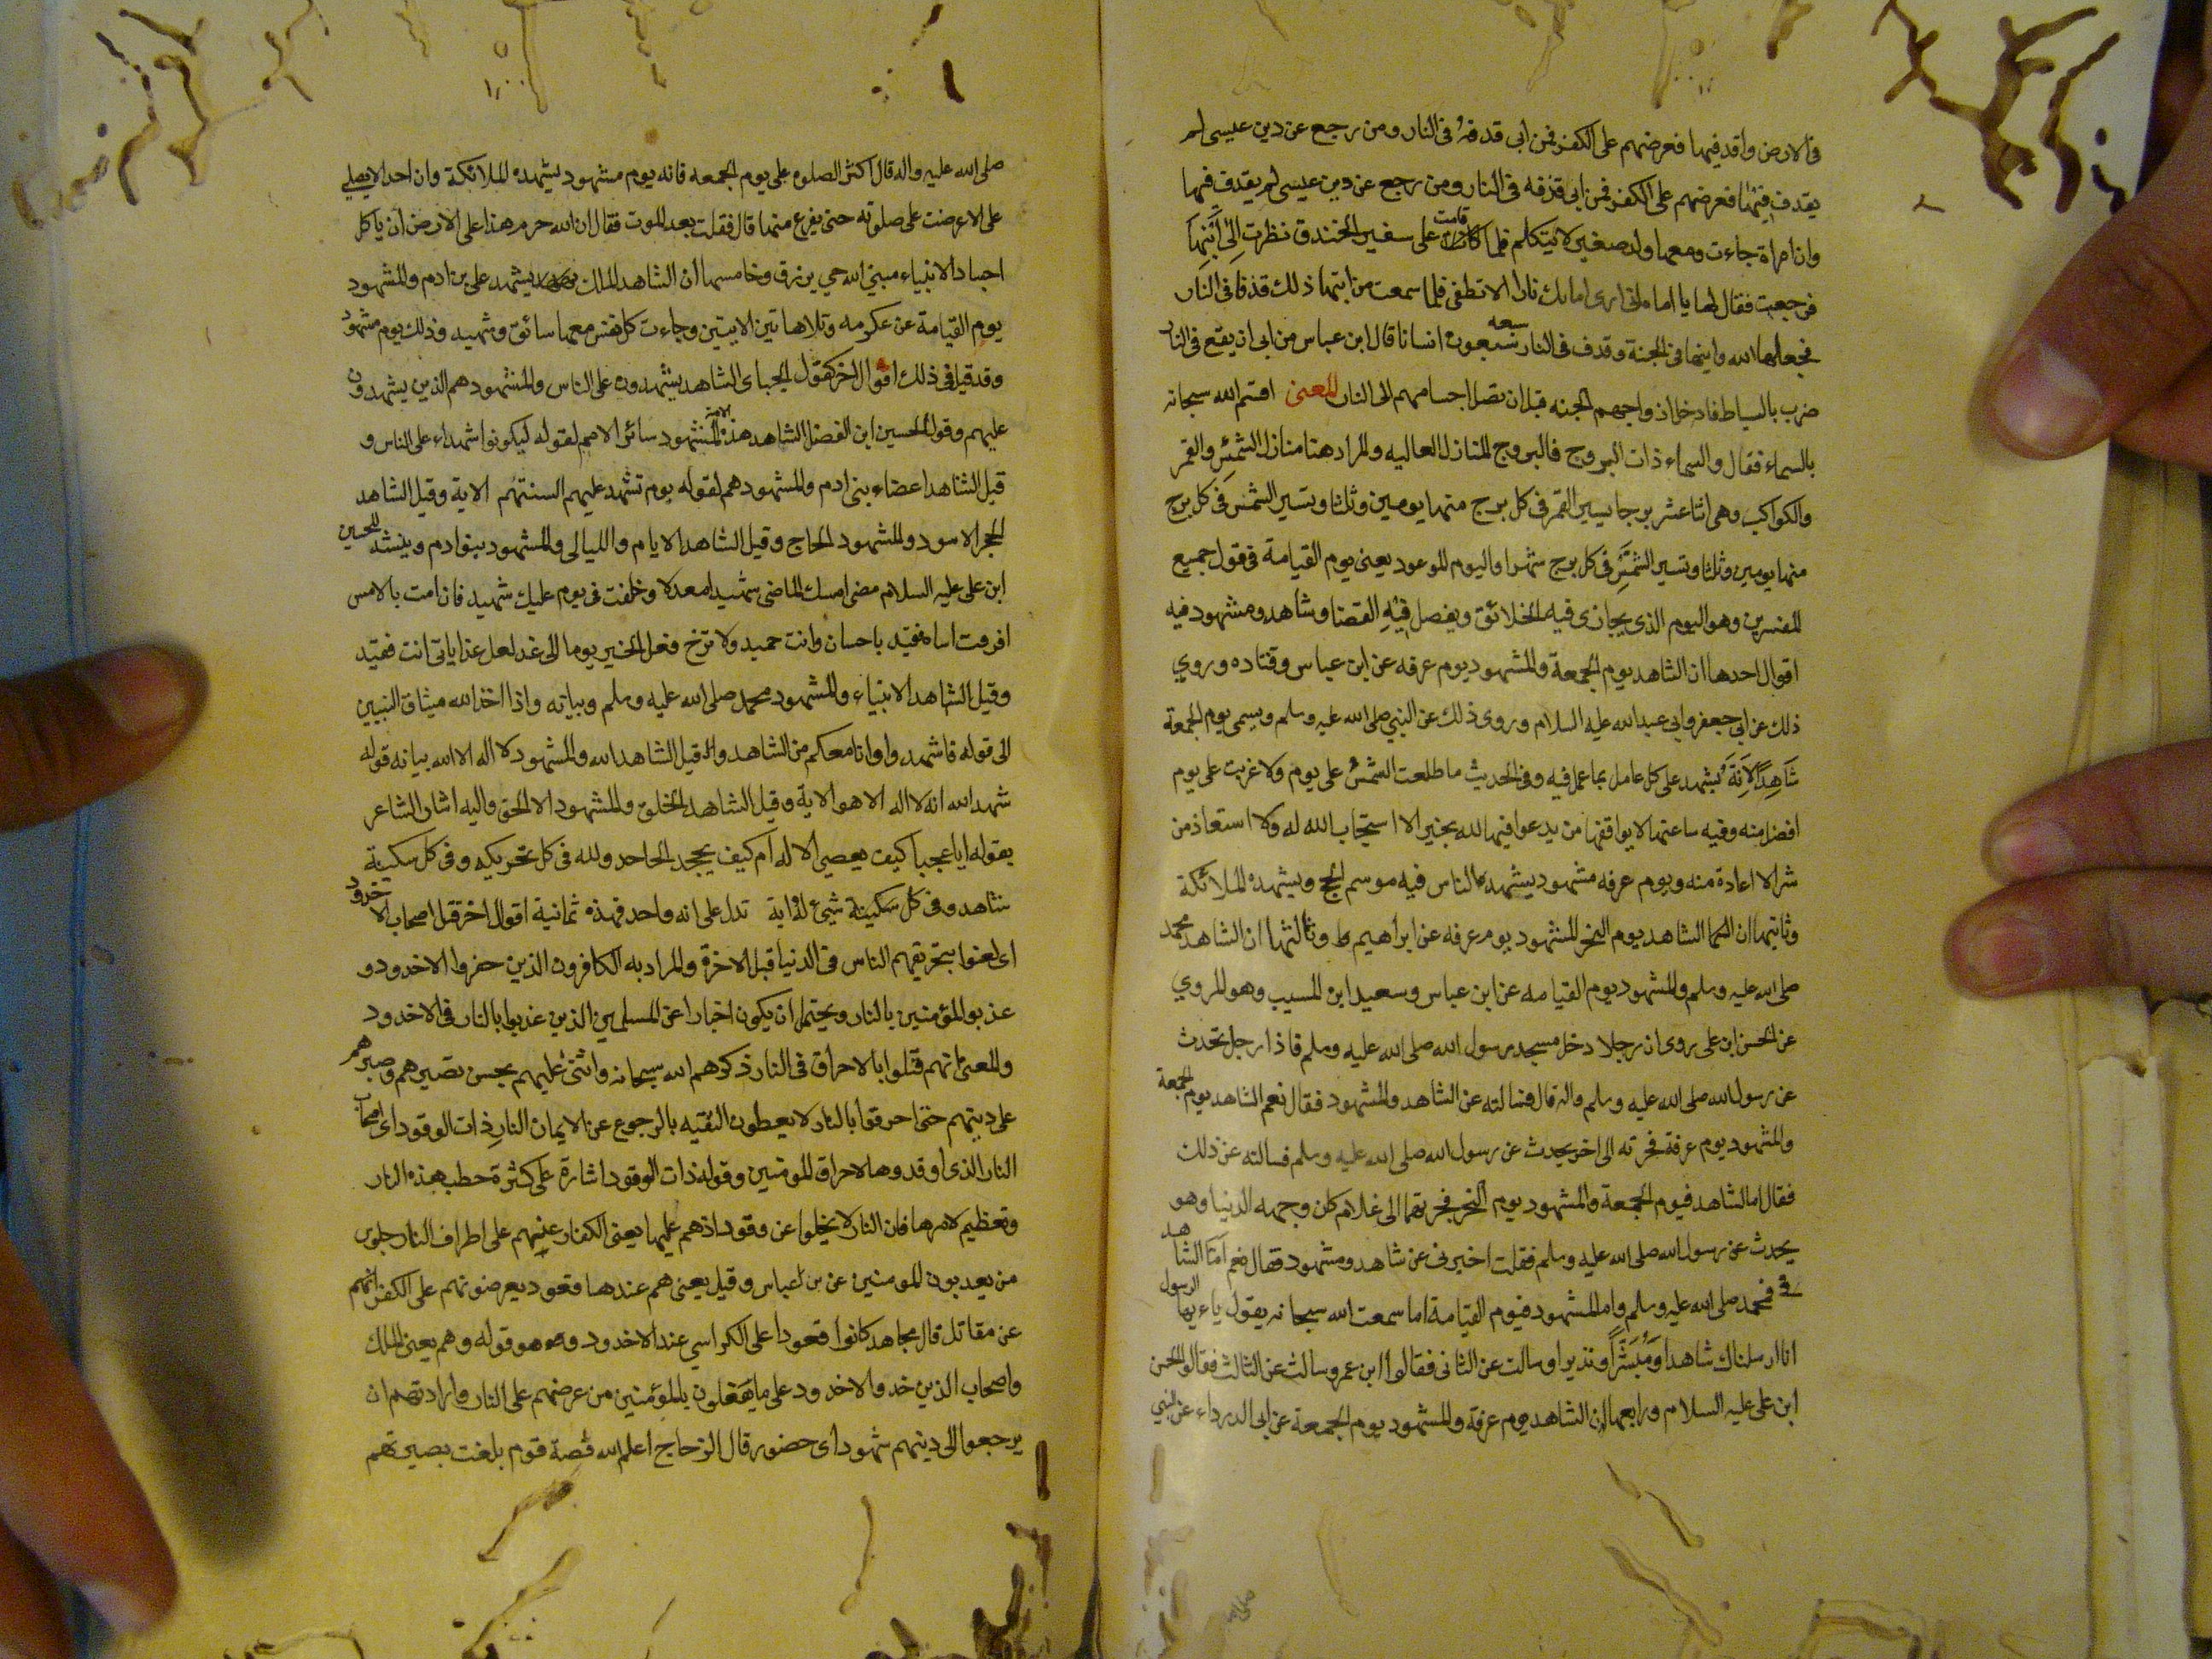 فى الارض واقد فيها فعرضهم على الكفر فمن ابى قدفه فى النار ومن رجع عن دين عيسى لم
يقدف فيها فعرضهم على الكفر فمن ابى قذفه فى النار ومن رجع عن دين عيسى لم يقدف فيها
وان امراة جاءت ومعها ولد صغير لا يتكلم فلما قامت على سفير الخندق نظرت الى ابنها
فرجعت فقال لها يا اماه انى ارى امامك نارا لا تطفى فلما سمعت من ابنها ذلك قذفا فى النار
فجعلها الله وابنها فى الجنة وقدف فى النار سبعه سبعون انسانا قال ابن عباس من ابى ان يقع فى النار
ضرب بالسياط فادخل ارواحهم الجنه قبل ان تصل اجسامهم الى النار المعنى اقسم الله سبحانه
بالسماء فقال والسماء ذات البروج فالبروج المنازل العاليه والمراد هنا منازل الشمس والقمر
والكواكب وهى اثنا عشر برجا يسير القمر فى كل برج منها يومين وثلثا وتسير الشمس فى كل برج
منها يومين وثلثا وتسير الشمس فى كل برج شهرا واليوم الموعود يعنى يوم القيامة فى قول جميع
المفسرين وهو اليوم الذى يجازى فيه الخلائق ويفصل فيه القضا وشاهد ومشهود فيه
اقوال احدها ان الشاهد يوم الجمعة والمشهود يوم عرفه عن ابن عباس وقتاده وروي
ذلك عن ابي جعفر وابى عبد الله عليه السلام وروى ذلك عن النبي صلى الله عليه وسلم وسمى يوم الجمعة
شاهدا لانه يشهد على كل عامل بما عمل فيه وفى الحديث ما طلعت الشمس على يوم ولا غربت على يوم
افضل منه وفيه ساعتها لا يوافقها من يدعوا فيها الله بخير الا استجاب الله له ولا استعاذ من
شر الا اعاذه منه ويوم عرفه مشهود يشهده الناس فيه موسم الحج ويشهده الملائكة
وثانيها ان الشاهد يوم النحر المشهود يوم عرفه عن ابراهيم وثالثها ان الشاهد محمد
صلى الله عليه وسلم والمشهود يوم القيامه عن ابن عباس وسعيد ابن المسيب وهو المروي
عن الحسن ابن على روى ان رجلا دخل مسجد رسول الله صلى الله عليه وسلم فاذا رجل تحدث
عن رسول الله صلى الله عليه وسلم واله قال فسالته عن الشاهد والمشهود فقال نعم الشاهد يوم الجمعة
والمشهود يوم عرفة فجزته الى اخر يحدث عن رسول الله صلى الله عليه وسلم فسالته عن ذلك
فقال اما الشاهد فيوم الجمعة والمشهود يوم النحر فجزتهما الى غلام كان وجهه الدنيا وهو
يحدث عن رسول الله صلى الله عليه وسلم فقلت اخبرنى عن شاهد ومشهود فقال نعم اما الشاهد
فمحمد صلى الله عليه وسلم واما المشهود فيوم القيامة اما سمعت الله سبحانه يقول ياءيها الرسول
انا ارسلناك شاهدا ومبشرا ونذيرا وسالت عن الثانى فقالوا ابن عمر وسالت عن الثالث فقالوا الحسن
ابن على عليه السلام ورابعها ان الشاهد يوم عرفة والمشهود يوم الجمعة عن ابى الدرداء عن النبي
صلى الله عليه واله قال اكثر الصلوه على يوم الجمعه فانه يوم مشهود يشهده الملائكة وان احد لا يصلي
على الا عرضت على صلوته حتى يفرغ منها قال فقلت بعد الموت فقال ان الله حرم هذا على الارض ان ياكل
اجساد الانبياء فنبي الله حي يرزق وخامسها ان الشاهد الملك يشهد على بن ادم والمشهود
يوم القيامة عن عكرمه وتلا هاتين الايتين وجاءت كل نفس معها سائق وشهيد وذلك يوم مشهود
وقد قيل فى ذلك اقوال اخر كقول الجباى الشاهد يشهدون على الناس والمشهود هم الذين يشهدون
عليهم وقول الحسين ابن الفضل الشاهد هذه الامة المشهود سائر الامم لقوله ليكونوا شهداء على الناس و
قيل الشاهد اعضاء بنى ادم والمشهود هم لقوله يوم تشهد عليهم السنتهم الاية وقيل الشاهد
الحجر الاسود والمشهود الحاج وقيل الشاهد الايام والليالى والمشهود بنو ادم وينشد للحسين
ابن على عليه السلام مضى امسك الماضى شهيدا معدلا وخلفت فى يوم عليك شهيد فان امت بالامس
افرمت اساة فقيد باحسان وانت حميد ولا ترخ فعل الخير يوما الى غد لعل غدا ياتى انت فقيد
وقيل الشاهد الانبياء والمشهود محمد صلى الله عليه وسلم وبيانه واذا اخذ الله ميثاق النبيين
الى قوله فاشهدوا وانا معكم من الشاهد والـ قيل الشاهد الله والمشهود لا اله الا الله بيانه قوله
شهد الله انه لا اله الا هو الاية وقيل الشاهد الخلق والمشهود الا الحق واليه اشار الشاعر
بقوله ايا عجبا كيف يعصى الاله ام كيف يجحد الجاحد ولله فى كل تحريكه وفى كل سكينة
شاهد وفى كل سكينة شىء له اية تدل على انه واحد فهذه ثمانية اقوال اخر قتل اصحاب الاخدود
اى لعنوا بتحريقهم الناس فى الدنيا قبل الاخرة والمراد به الكافرون الذين حفروا الاخدود و
عذبوا المؤمنين بالنار ويحتمل ان يكون اخبارا عن المسلمين الذين عذبوا بالنار فى الاخدود
والمعنى انهم قتلوا بالاحراق فى النار ذكرهم الله سبحانه واثنى عليهم بحسن بصيرهم وصبرهم
على دينهم حتى احرقوا بالنار لا يعطون التقيه بالرجوع عن الايمان النار ذات الوقود اى اصحاب
النار الذى اوقدوها لاحراق المومنين وقوله ذات الوقود اشارة على كثرة حطب هذه النار
وتعظيم لامرها فان النار لا يخلوا عن وقود اذ هم عليها يعنى الكفار عنهم على اطراف النار جلوس
من يعدبون المومنين عن بن عباس وقيل يعنى هم عندها قعود يعرضونهم على الكفر انهم
عن مقاتل قال مجاهد كانوا قعودا على الكراسي عند الاخدود وهو قوله وهم يعنى الملك
واصحاب الذين خدوا الاخدود على ما يفعلون بالمؤمنين من عرضهم على النار وارادتهم ان
يرجعوا الى دينهم شهود اى حضور قال الزجاج اعلم الله قصة قوم بلغت بصيرتهم